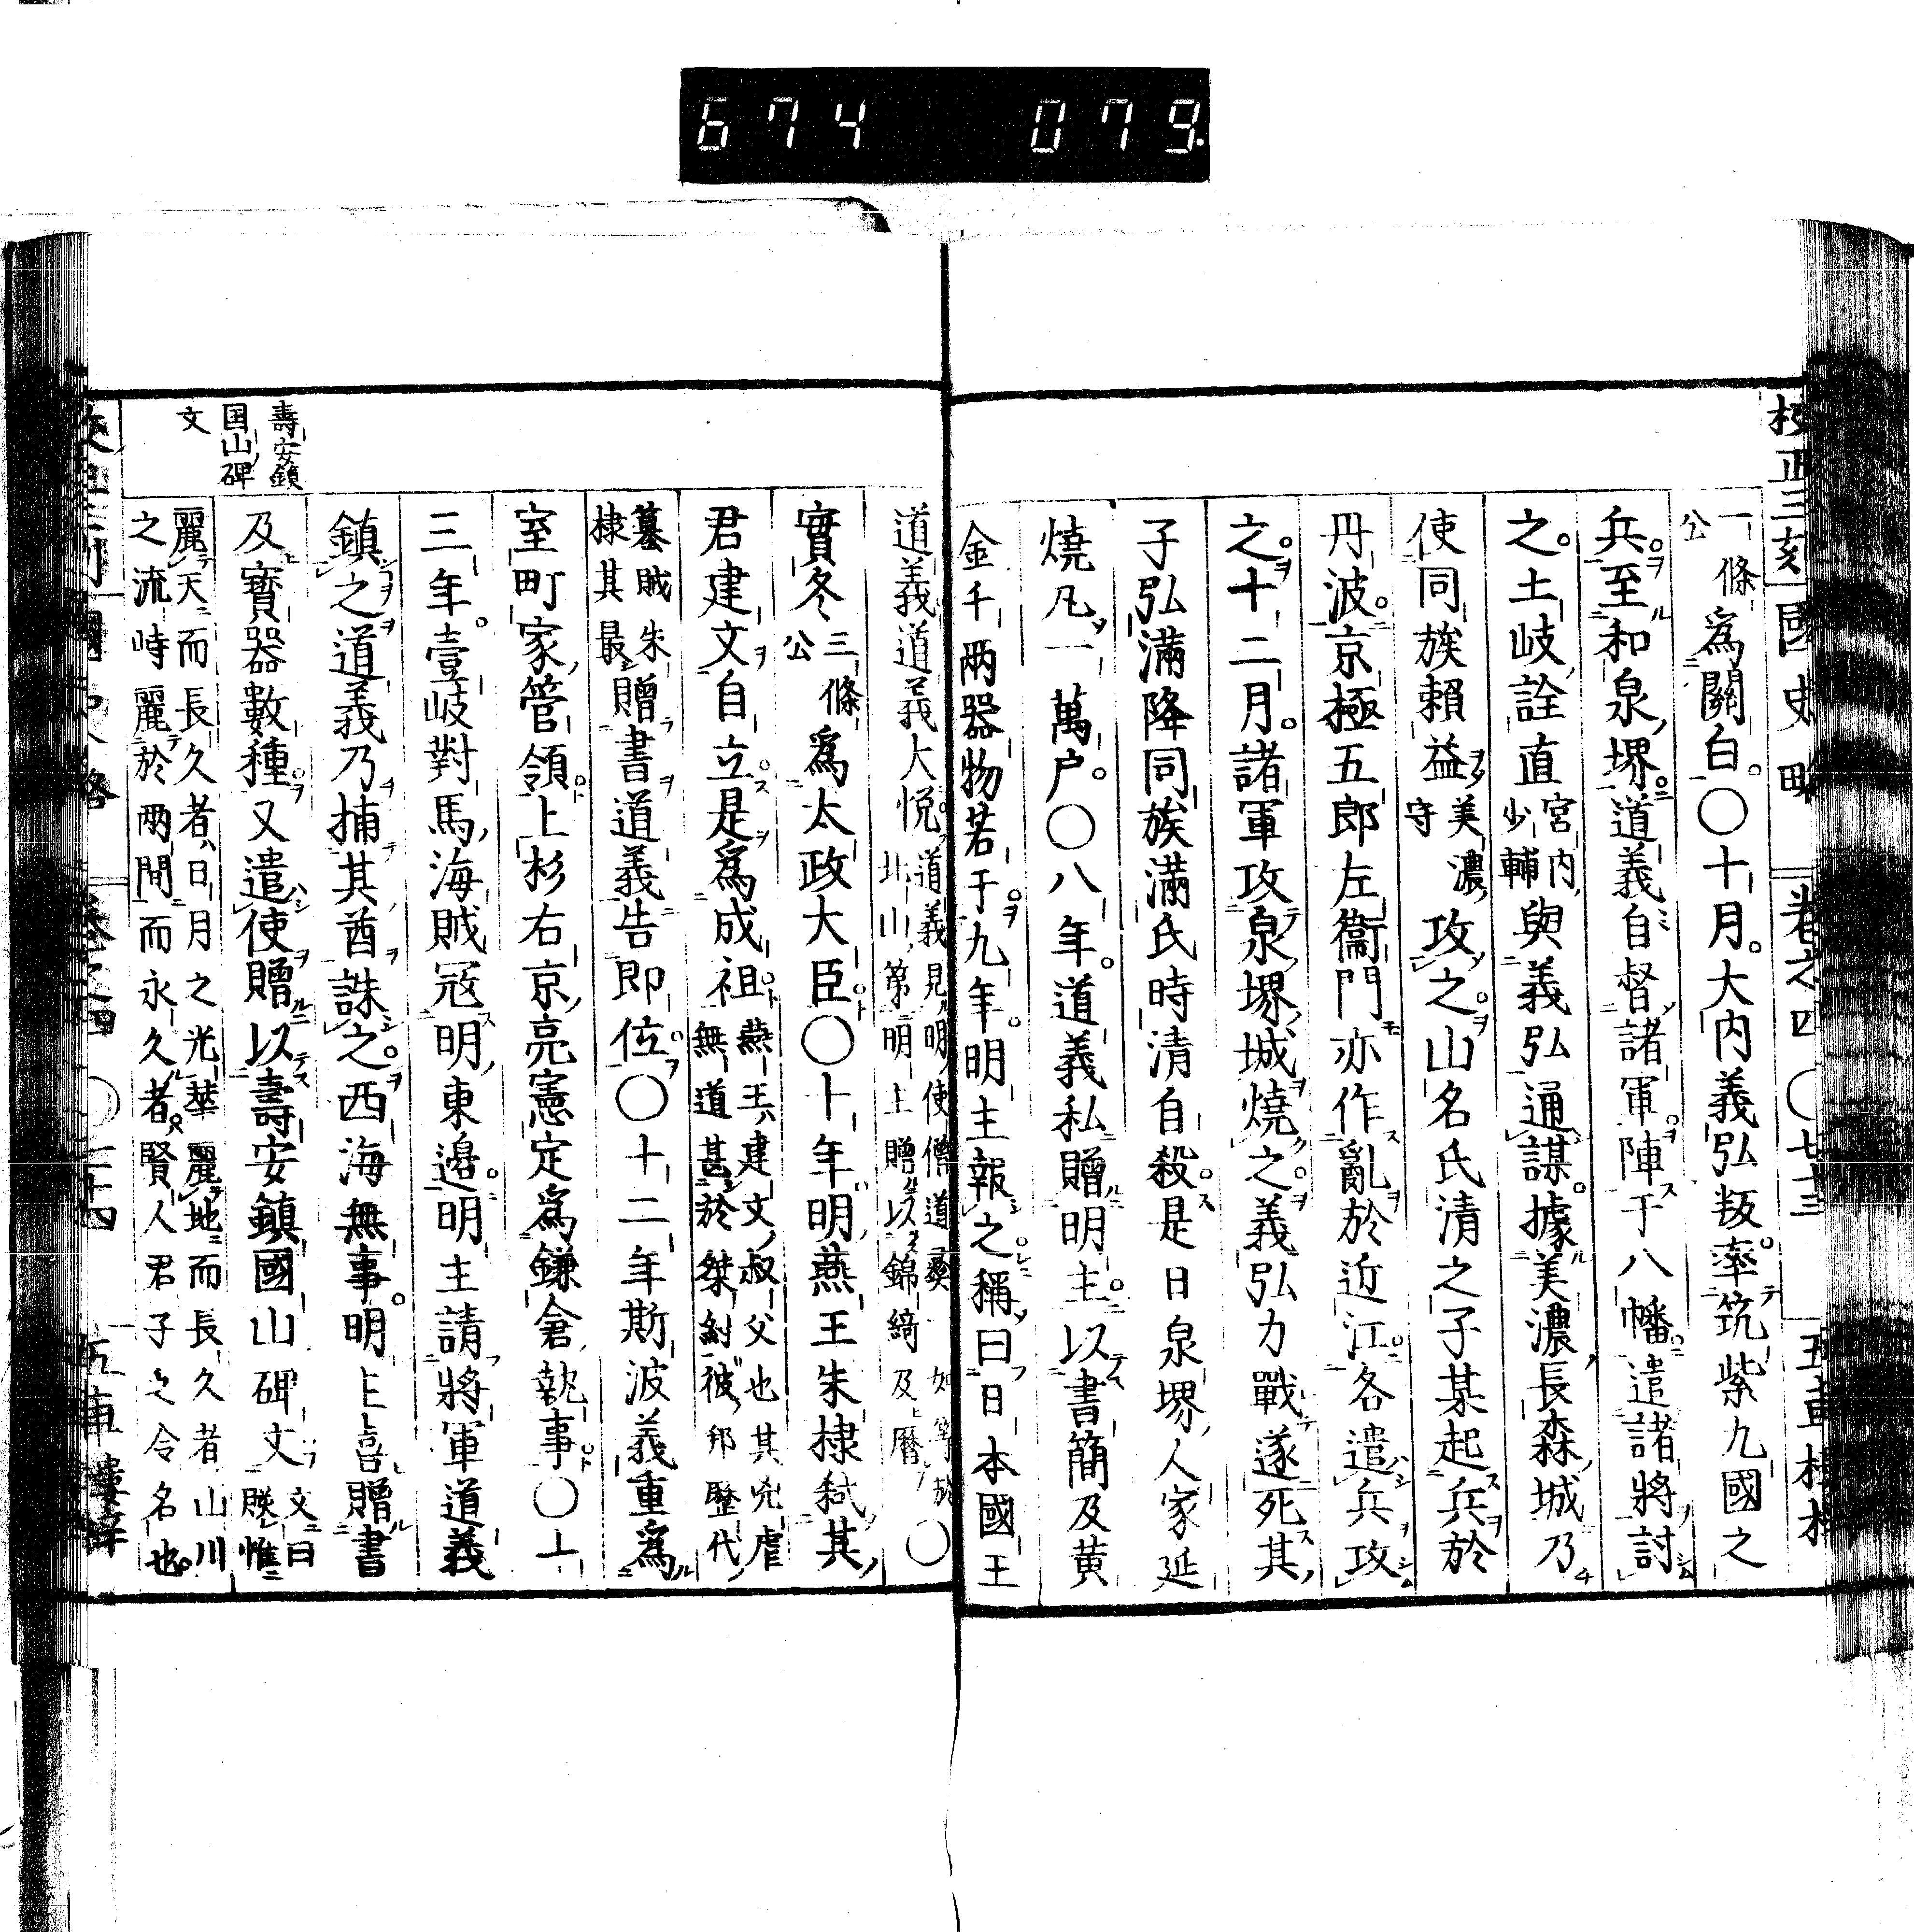 674 079
校正三刻 國史略 卷之四 〇廿三 五車樓梓
一條公爲關白。〇十月。大内義弘叛。率筑紫九國之
兵。至和泉堺。道義自督諸軍。陣于八幡。遣諸將討
之。土岐詮直宮内少輔與義弘通謀。據美濃長森城乃
使同族賴益美濃守攻之。山名氏清之子某起兵於
丹波。京極五郎左衞門亦作亂於近江。各遣兵攻
之。十二月。諸軍攻泉堺城燒之。義弘力戰遂死其
子弘滿降同族滿氏時清自殺。是日泉堺人家延
燒凡一萬户。〇八年。道義私贈明主。以書簡及黄
金千兩器物若于。九年。明主報之。稱曰日本國王
道義道義大悦。道義見明使僧道彝北山第明主贈以錦綺及曆〇
實冬三條公爲太政大臣。〇十年明燕王朱棣弑其
君建文自立。是爲成祖。燕王、建文叔父也其兇虐無道甚於桀紂彼邦歷代
簒賊朱棣其最贈書道義告即位。〇十二年斯波義重爲
室町家管領。上杉右京亮憲定爲鎌倉執事。〇十
三年。壹岐對馬海賊冦明東邊。明主請將軍道義
鎮之道義乃捕其酋誅之。西海無事。明主喜贈書
及寶器數種。又遣使贈以壽安鎮國山碑文文曰朕惟
麗天而長久者、日月之光華麗地而長久者山川
之流峙麗於兩間而永久者。賢人君子之令名也。
壽安鎮
国山碑
文